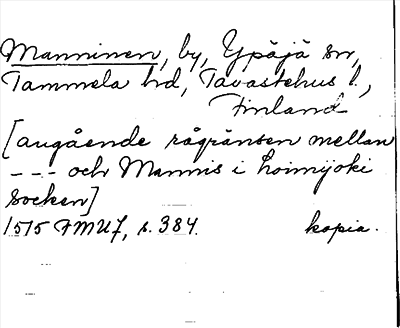 Manninen, by, Ypäjä sn,
Tammela hd, Tavastehus l.,
Finland
[angående rågränsen mellan
--- och Mannis i Loimijoki
socken]
1515 FMU 7, s. 384. kopia.